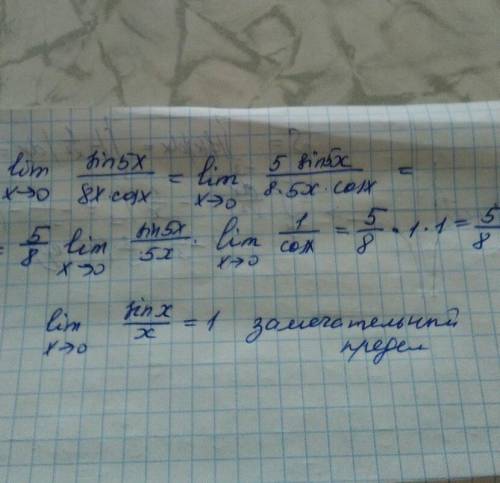 lim x→0 sin5x / 8x · cosx = lim x→0 5 sin5x / 8 · 5x · cosx =
= 5/8 lim x→0 sin5x / 5x · lim x→0 1 / cosx = 5/8 · 1 · 1 = 5/8
lim x→0 sin x / x = 1 замечательный
предел